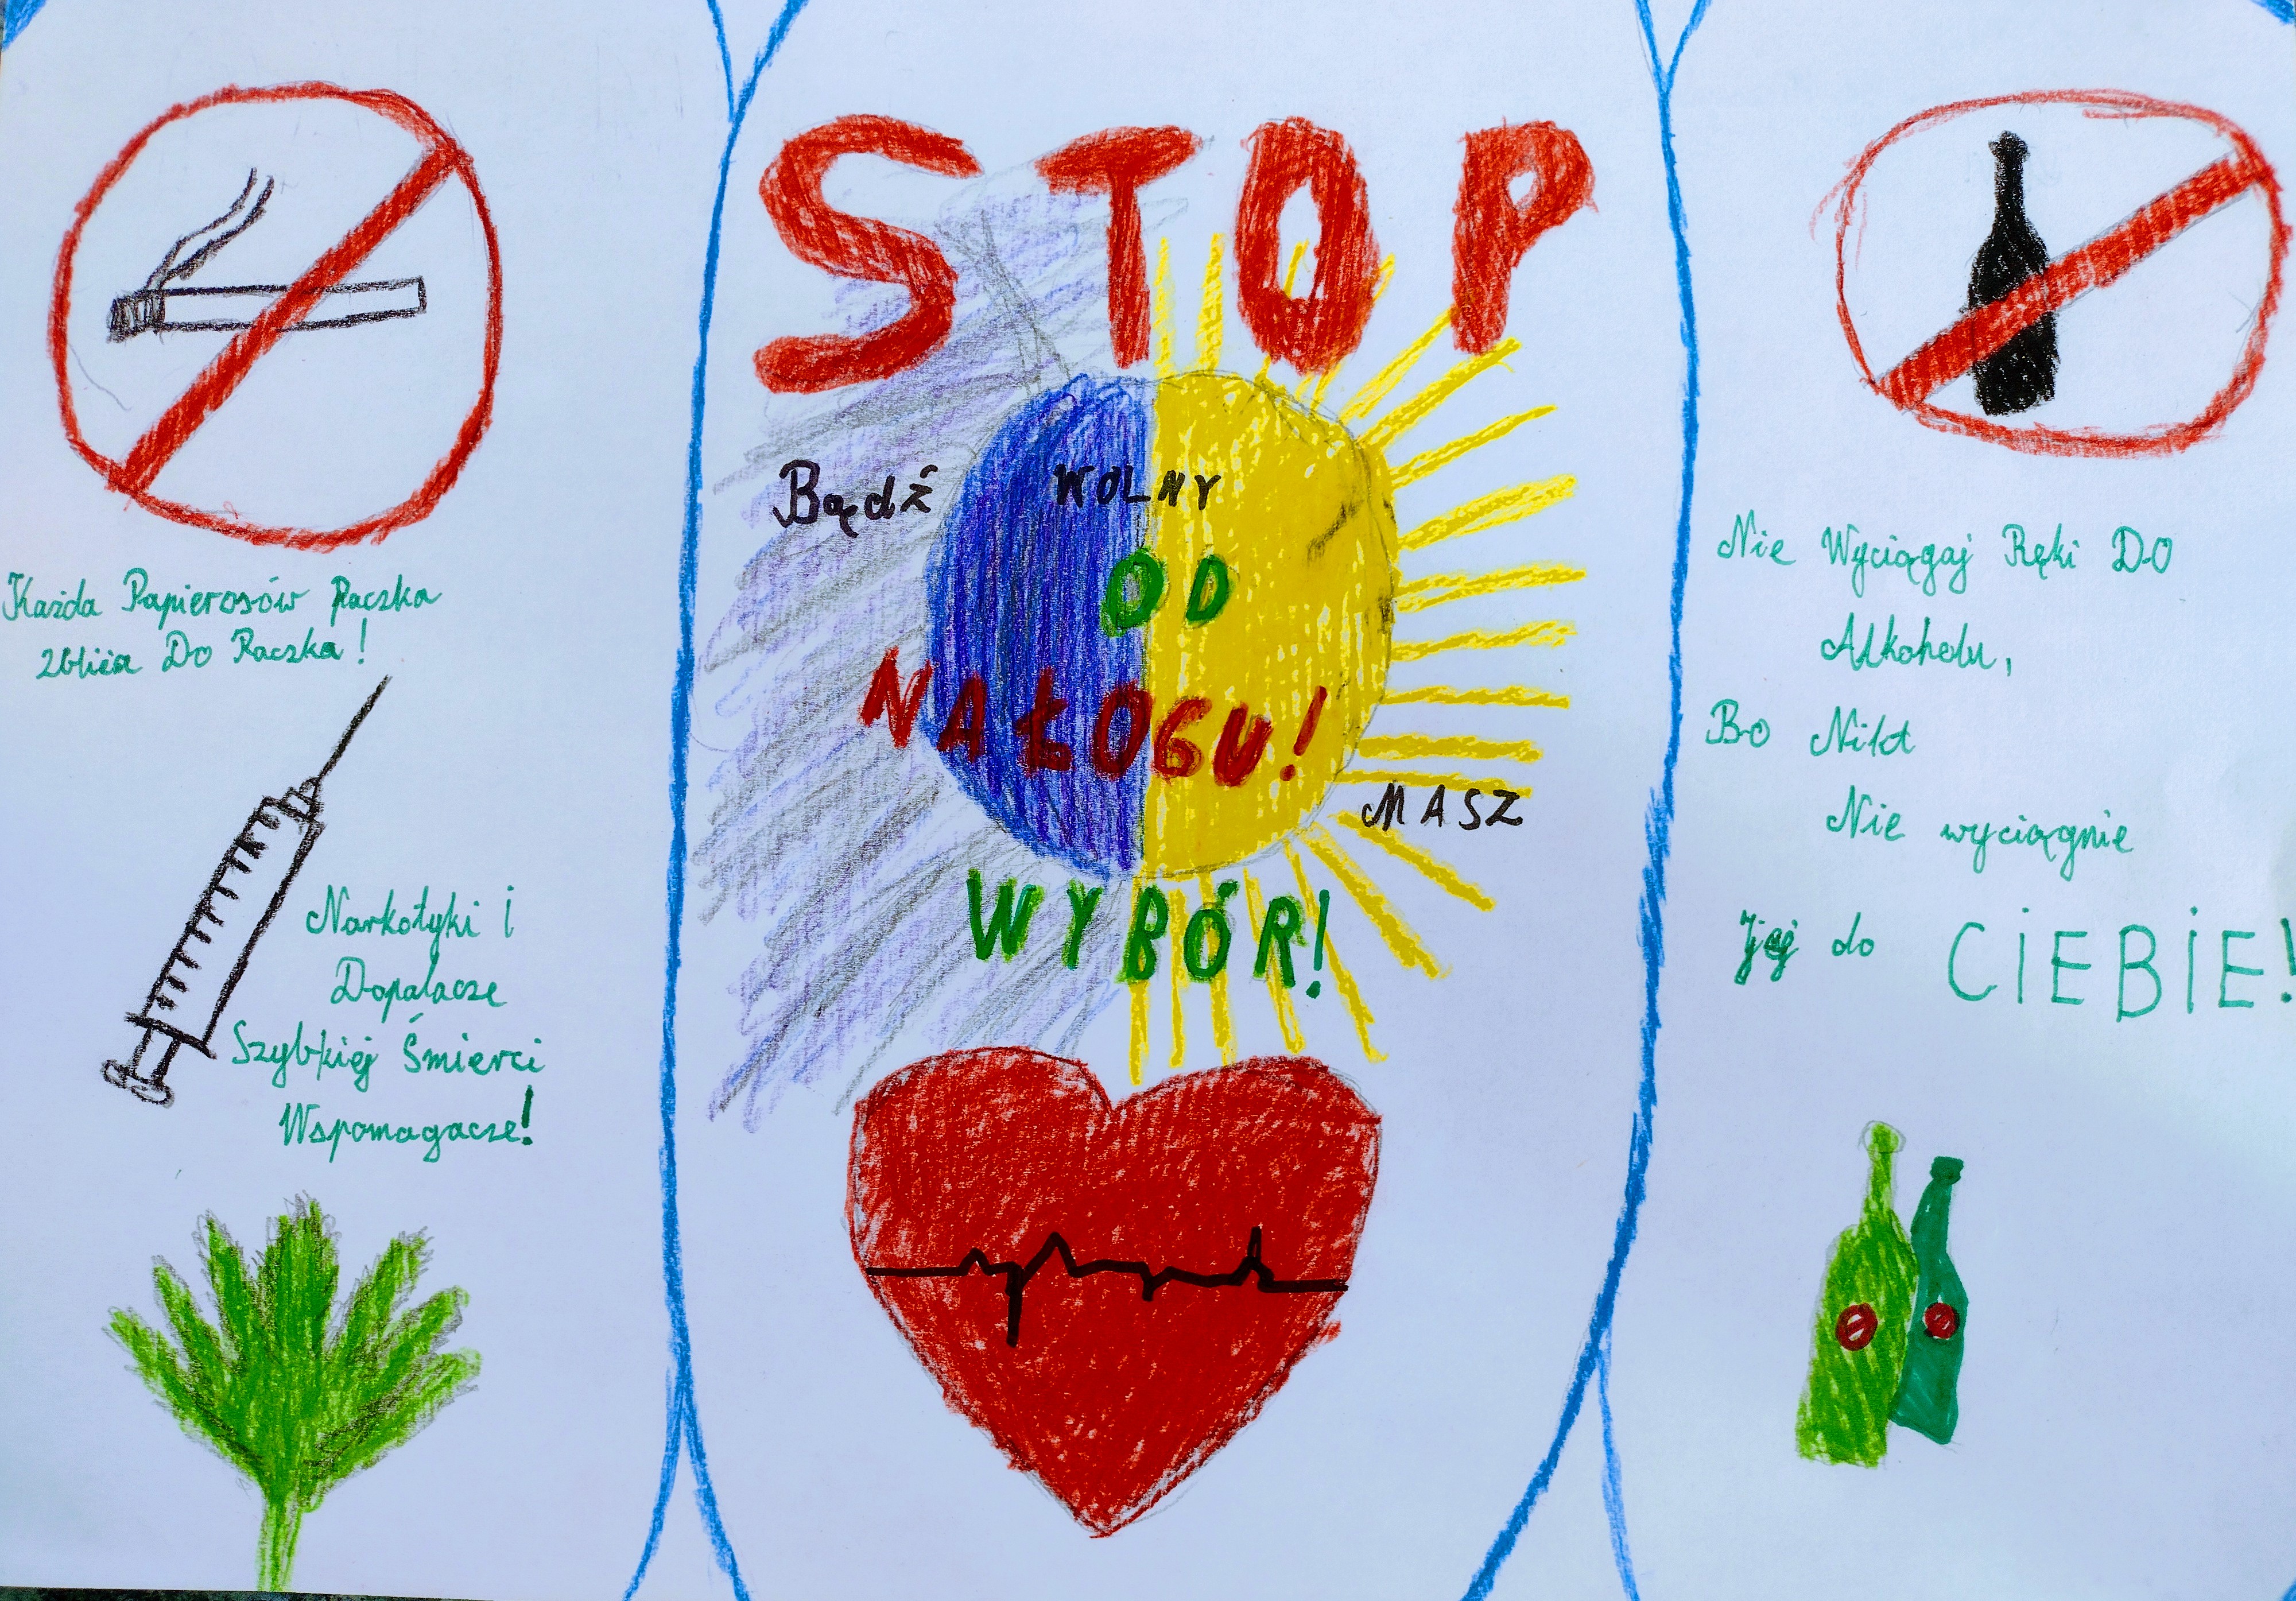 STOP
Bądź WOLNY
OD
NAŁOGU!
MASZ
WYBÓR!
Każda Papierosów Paczka
zbliża Do Raczka!
Narkotyki i
Dopalacze
Szybkiej Śmierci
Wspomagacze!
Nie Wyciągaj Ręki DO
Alkoholu,
Bo Nikt
Nie wyciągnie
Jej do CIEBIE!